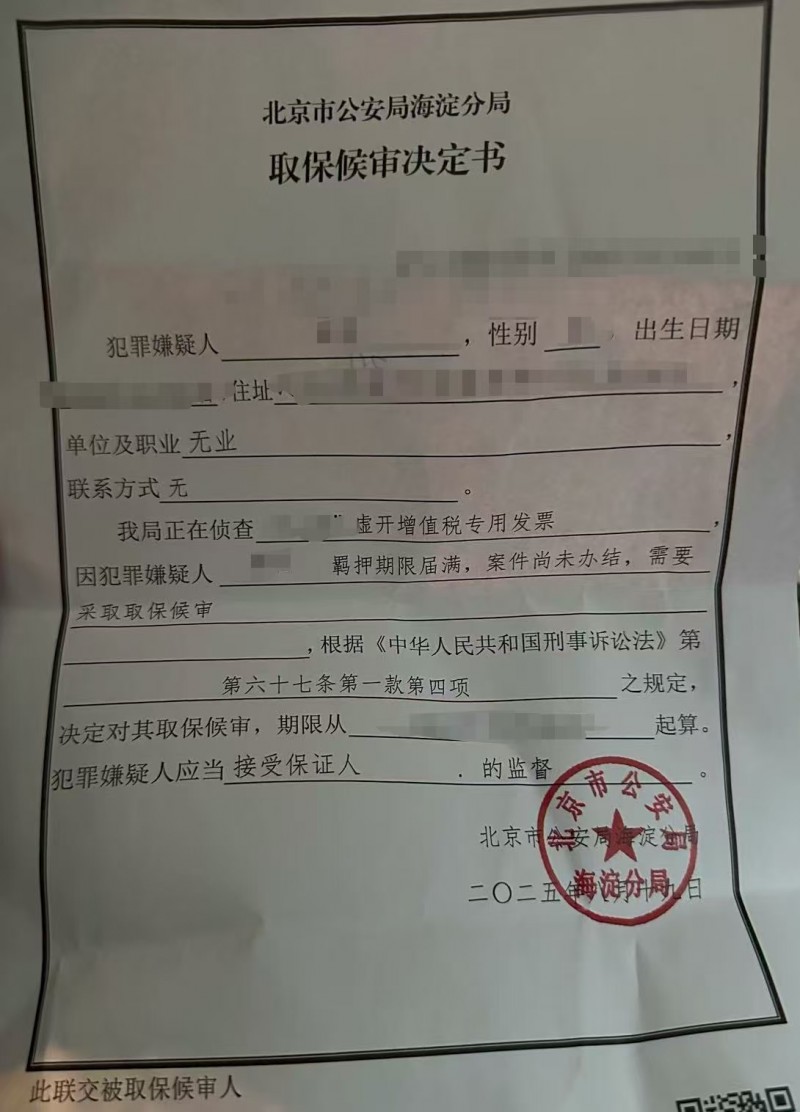 北京市公安局海淀分局
取保候审决定书
犯罪嫌疑人 ，性别 ，出生日期
住址 ，
单位及职业无业 ，
联系方式无 。
我局正在侦查 虚开增值税专用发票 ，
因犯罪嫌疑人 羁押期限届满，案件尚未办结，需要
采取取保候审
，根据《中华人民共和国刑事诉讼法》第
第六十七条第一款第四项 之规定，
决定对其取保候审，期限从 起算。
犯罪嫌疑人应当接受保证人 的监督 。
北京市公安局海淀分局
二〇二五年八月十九日
北京市公安局
海淀分局
此联交被取保候审人